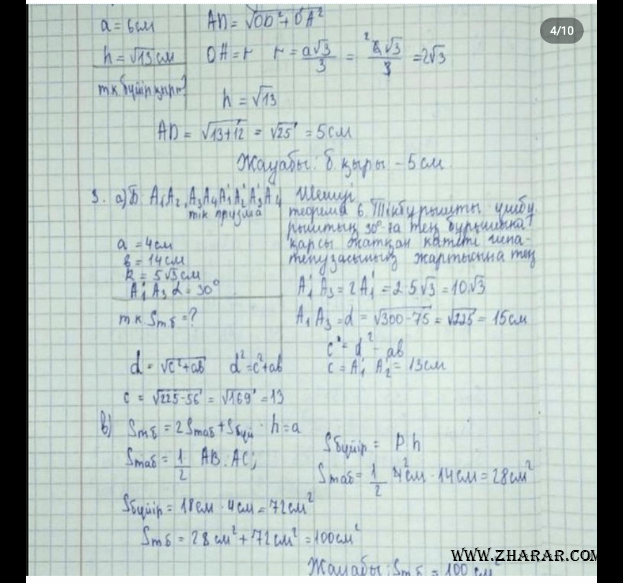 4/10
a = 6см
AD = √OD² + OA²
h = √13 см
OA = r r = a√3/3 = 6√3/3 = 2√3
h = √13
AD = √13+12 = √25 = 5см
Жауабы: б қыры - 5см
3. а) Б: A₁A₂A₃A₄A₁'A₂'A₃'A₄'
тік призма
a = 4см
в = 14см
R = 5√3см
A₁'A₃ d = 30°
тк Sтб = ?
Шешуі
теорема 6. Тікбұрышты үшбұ
рыштың 30° ға тең бұрышына
қарсы жатқан катеті гипо-
тенузасының жартысына тең
A₁'A₃ = 2A₁' = 2·5√3 = 10√3
A₁A₃ = d = √300-75 = √225 = 15см
c² = d² - ab
c = A₁'A₂' = 13см
d = √c²+ab d² = c²+ab
c = √225-56 = √169 = 13
в) Sтб = 2Sтаб + Sбүй · h = a
Sтаб = 1/2 AB·AC;
Sбүйір = P·h
Sтаб = 1/2 4см · 14см = 28см²
Sбүйір = 18см · 4см = 72см²
Sтб = 28см² + 72см² = 100см²
Жауабы: Sтб = 100см²
WWW.ZHARAR.COM